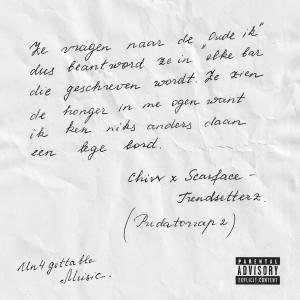 Ze vragen naar de "Oude ik"
dus beantword ze in "elke bar
die geschreven wordt. Ze zien
de honger in me ogen want
ik ken niks anders daan
een lege bord.
Chivv x Scarface -
Trendsetterz.
(Pudatorrap 2)
Un4gettable
Music.
PARENTAL
ADVISORY
EXPLICIT CONTENT